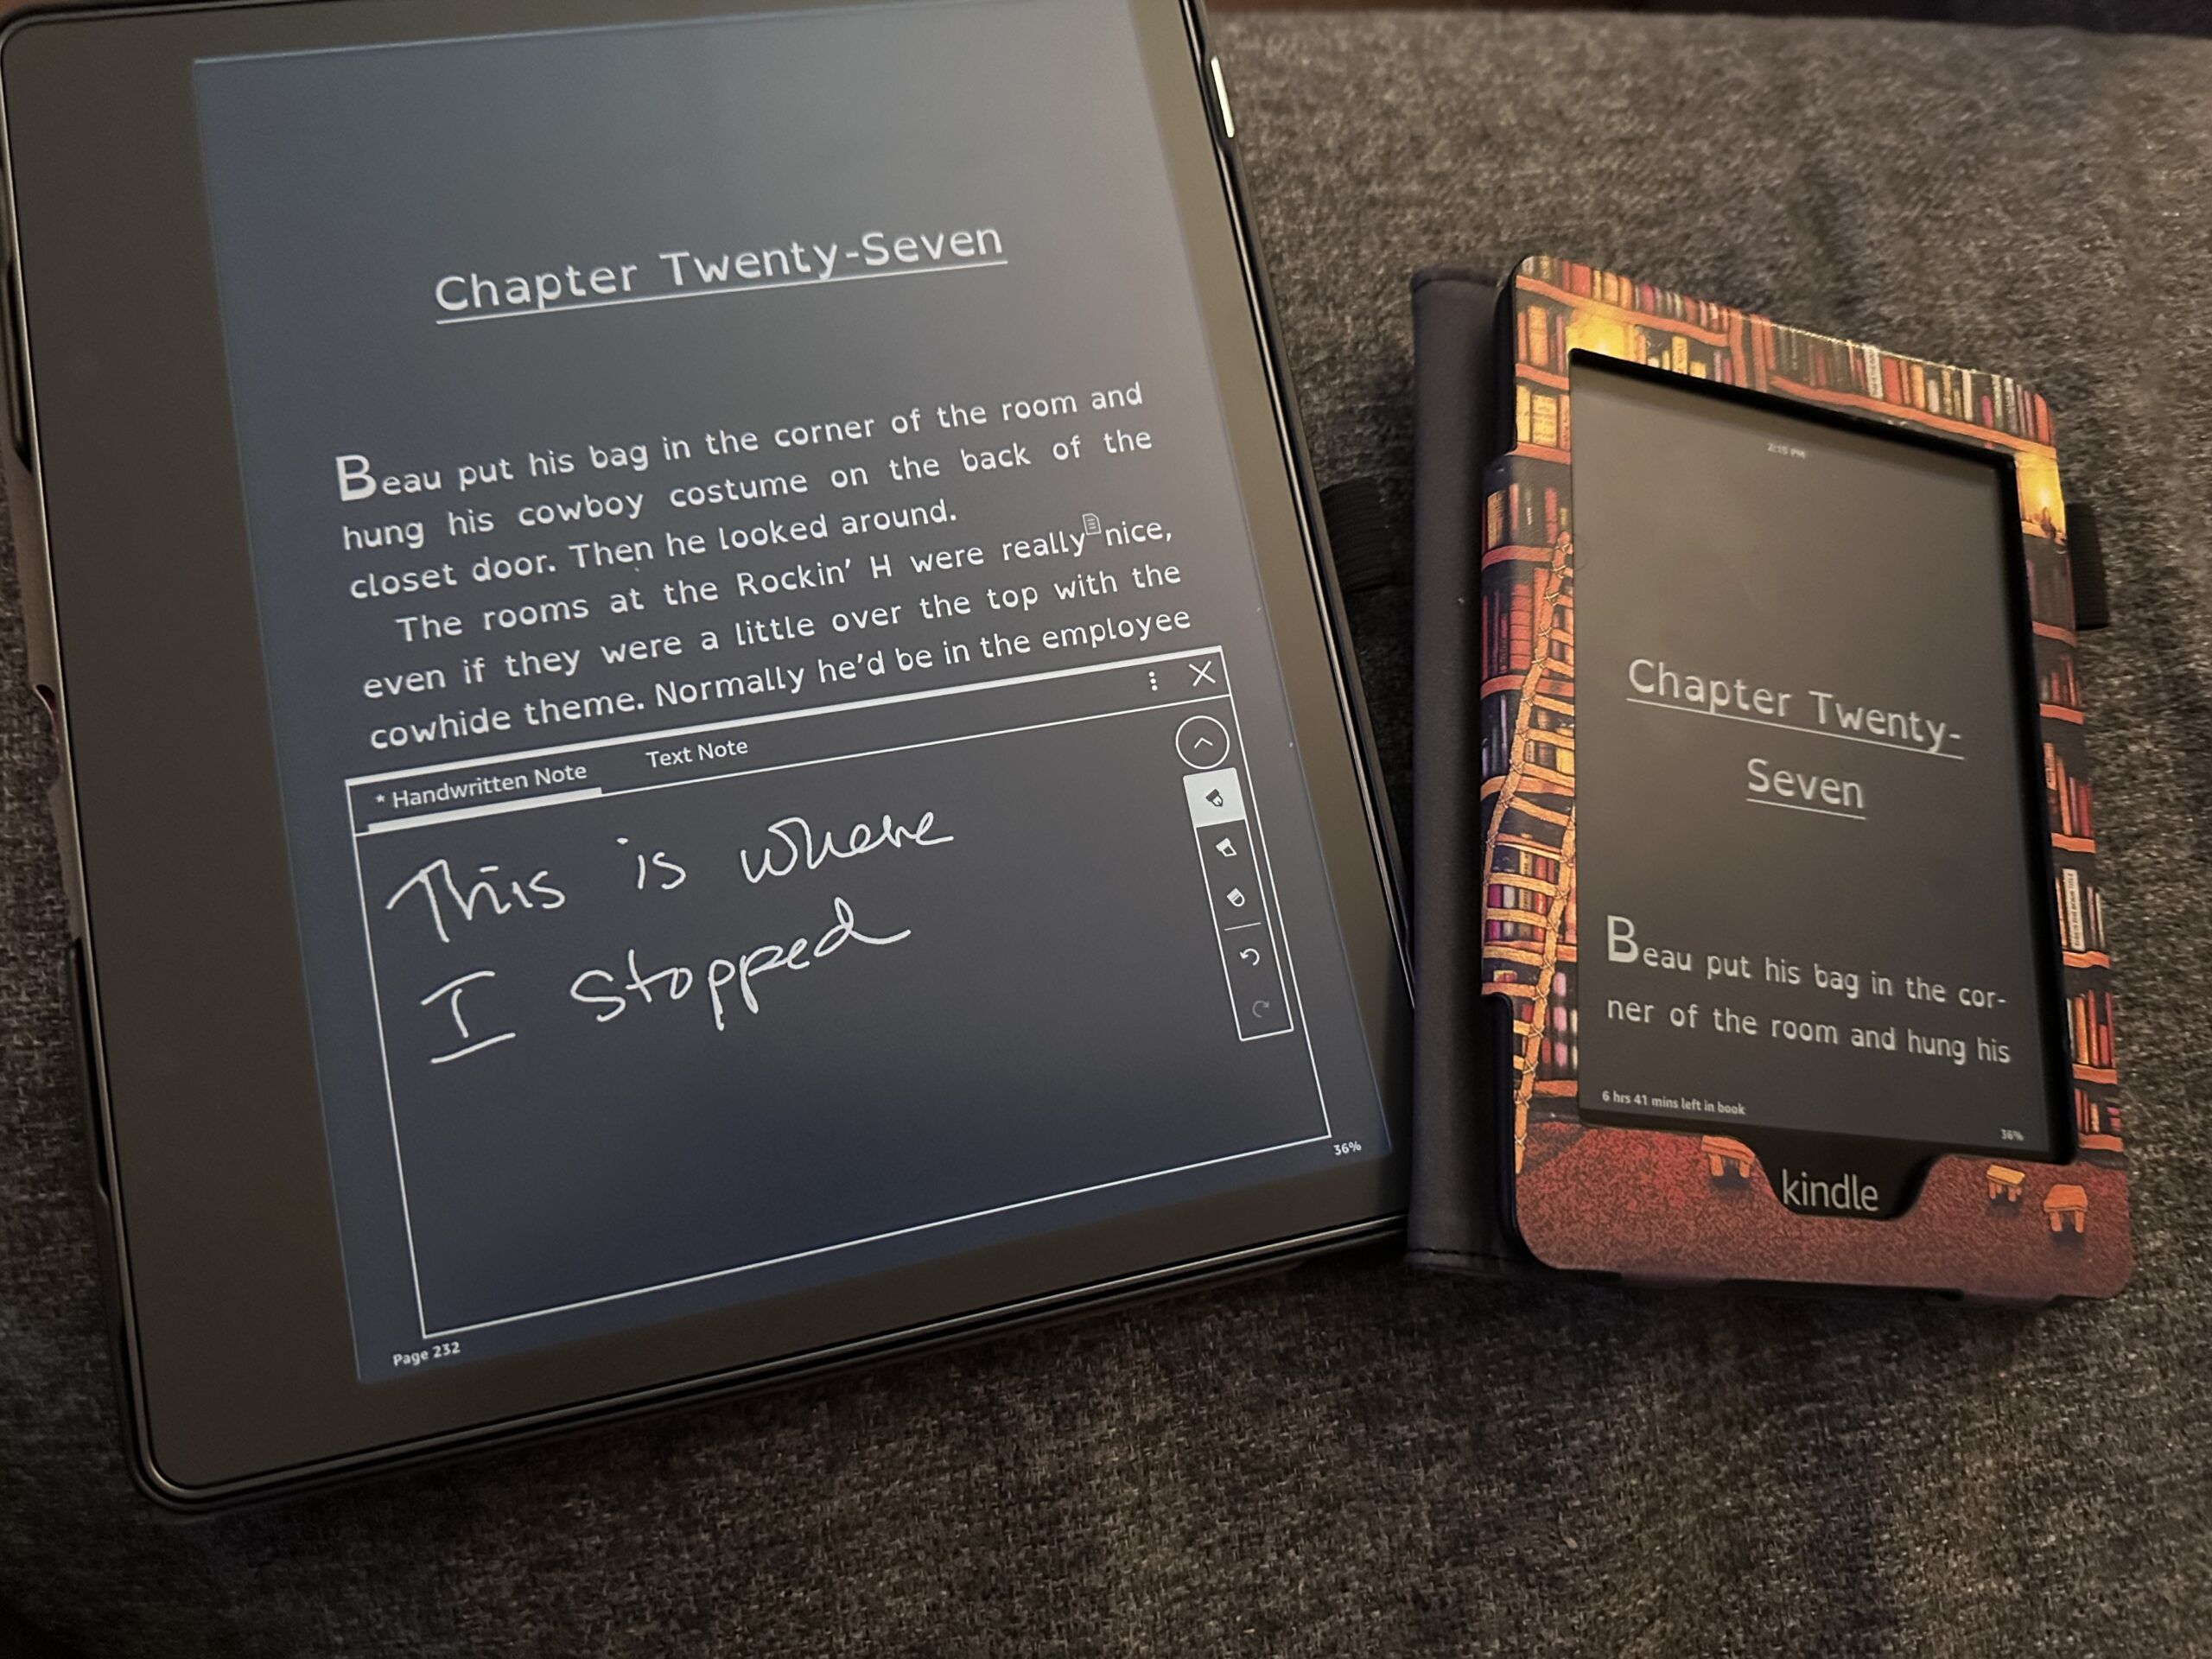 Chapter Twenty-Seven
Beau put his bag in the corner of the room and
hung his cowboy costume on the back of the
closet door. Then he looked around.
The rooms at the Rockin' H were really nice,
even if they were a little over the top with the
cowhide theme. Normally he'd be in the employee
* Handwritten Note
Text Note
This is where
I stopped
Page 232
36%
2:15 PM
Chapter Twenty-
Seven
Beau put his bag in the cor-
ner of the room and hung his
6 hrs 41 mins left in book
36%
kindle